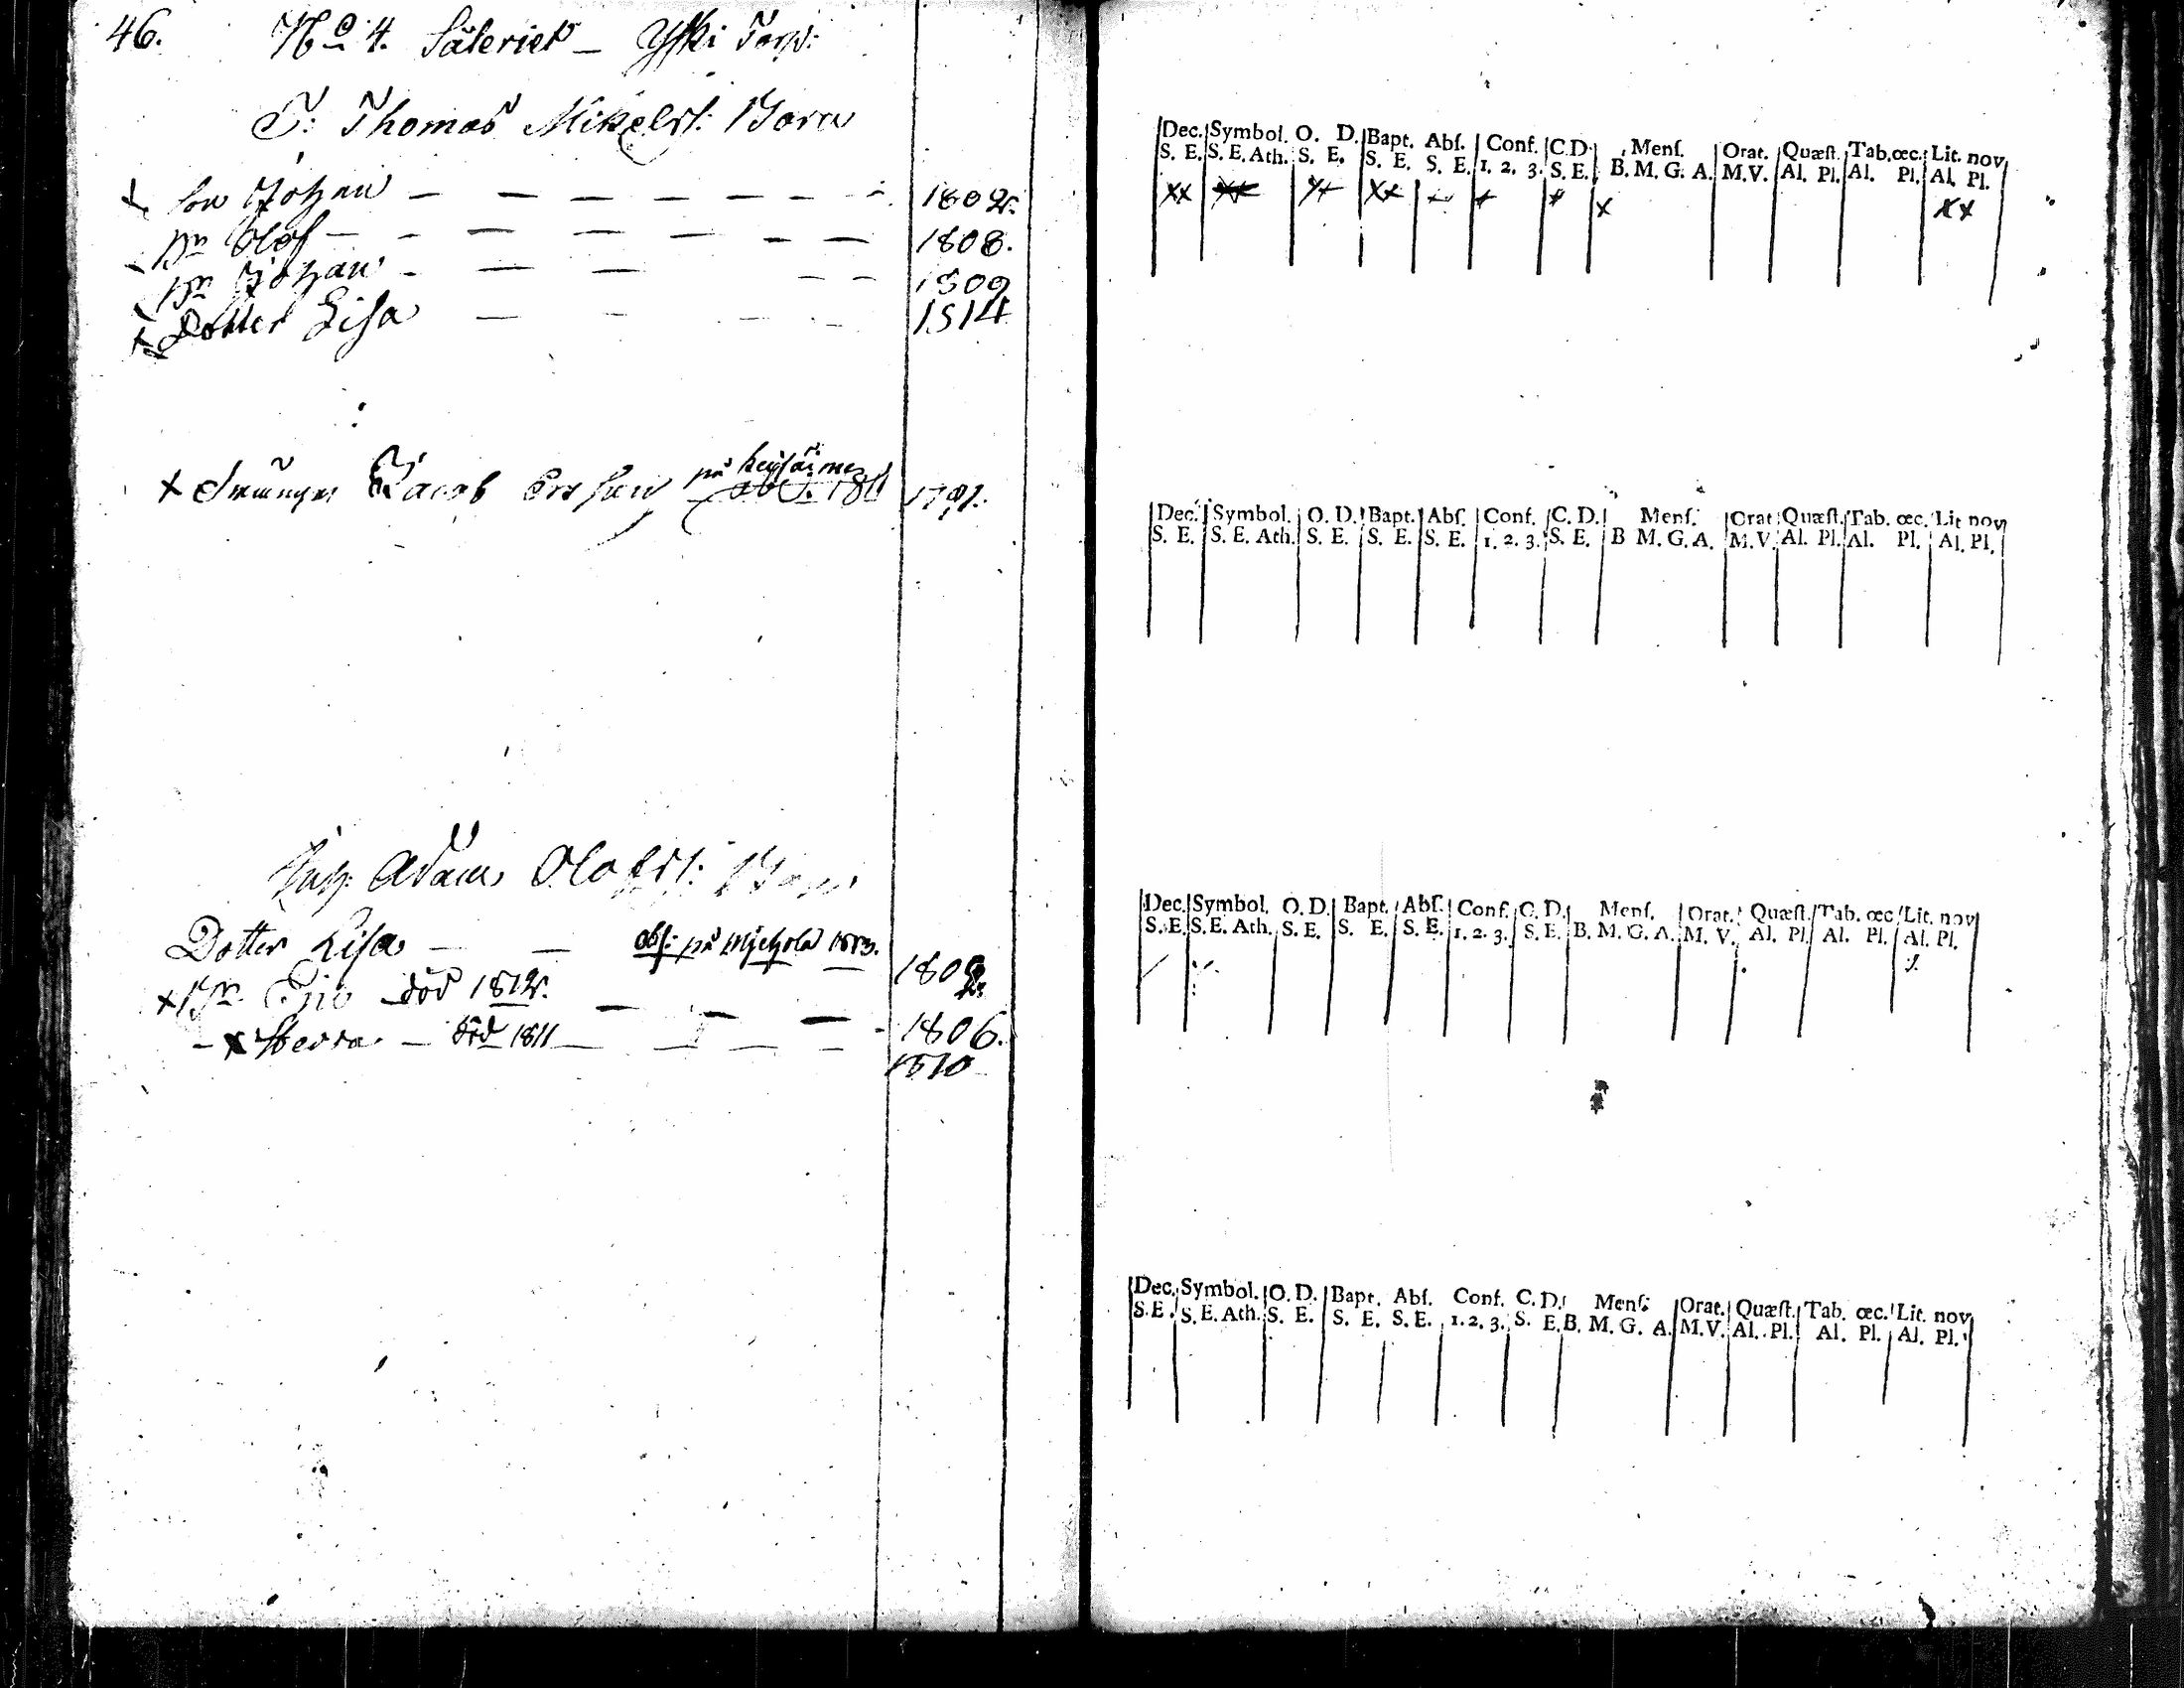 46. No 4. Säteriet – Yski Torp:
T: Thomas Mikelss: Barn
x Son Johan – – – – – – – 1802.
Dn Olof – – – – – – – 1808.
Dn Johan – – – – – 1809
x Dotter Lisa – – – – 1814
x Jacob Ersson på 1811 1791.
Adam Olofss: Barn
Dotter Lisa – – obs: på 1813. 1802.
x Dn död 1812. – – – 1806.
– x Hedda – död 1811 – – – – 1810
Dec. Symbol. O. D. Bapt. Abſ. Conf. C.D. Menſ. Orat. Quæſt. Tab. œc. Lit. nov
S. E. S. E. Ath. S. E. S. E. S. E. 1. 2. 3. S. E. B. M. G. A. M.V. Al. Pl. Al. Pl. Al. Pl.
xx xx xx xx x x x x xx
Dec. Symbol. O. D. Bapt. Abſ. Conf. C. D. Menſ. Orat Quæſt. Tab. œc. Lit nov
S. E. S. E. Ath. S. E. S. E. S. E. 1. 2. 3. S. E. B M. G. A. M.V. Al. Pl. Al. Pl. Al. Pl.
Dec. Symbol. O. D. Bapt. Abſ. Conf. C. D. Menſ. Orat. Quæſt. Tab. œc Lit. nov
S. E. S. E. Ath. S. E. S. E. S. E. 1. 2. 3. S. E. B. M. G. A. M. V. Al. Pl. Al. Pl. Al. Pl.
Dec. Symbol. O. D. Bapt. Abſ. Conf. C. D. Menſ: Orat. Quæſt. Tab. œc. Lit. nov
S. E. S. E. Ath. S. E. S. E. S. E. 1. 2. 3. S. E. B. M. G. A. M.V. Al. Pl. Al. Pl. Al. Pl.